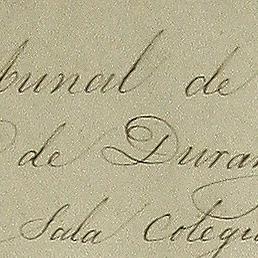 bunal de
de Duran
Sala Colegi